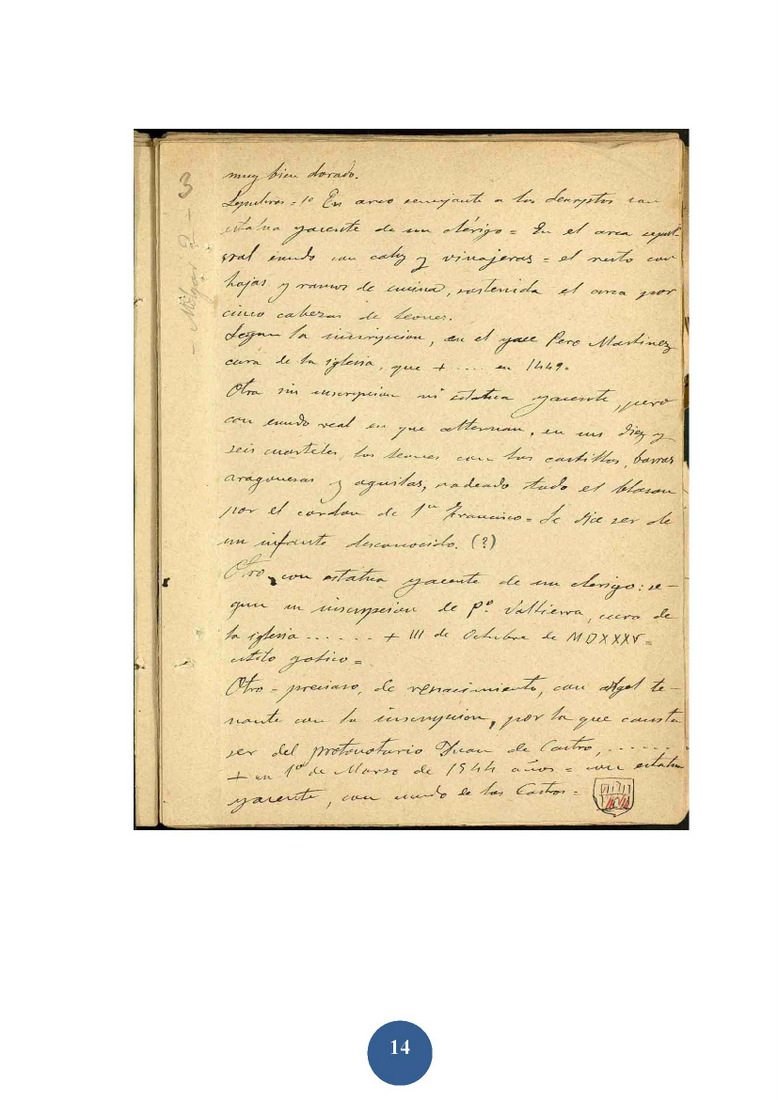 3
- Melgar? -
muy bien dorado.
Sepulcros = 1º En arco semejante a los descriptos con
estatua yacente de un clérigo = En el arca sepul-
cral escudo con caliz y vinajeras = el resto con
hojas y ramos de encina, sostenida el arca por
cinco cabezas de leones.
Segun la inscripcion, en el yace Pero Martinez
cura de la iglesia, que + .... en 1449.
Otra sin inscripcion ni estatua yacente, pero
con escudo real en que alternan, en sus diez y
seis cuarteles, los leones con los castillos, barras
aragonesas y aguilas, rodeado todo el blason
por el cordon de Sn Francisco = Se dice ser de
un infante desconocido. (?)
Otro, con estatua yacente de un clerigo: se-
gun su inscripcion de Pº Valtierra, cura de
la iglesia ....... + III de Octubre de MDXXXV =
estilo gotico =
Otro = precioso, de renacimiento, con angel te-
nante con la inscripcion, por la que consta
ser del protonotario Juan de Castro, .......
+ en 1º de Marzo de 1544 años = con estatua
yacente, con escudo de los Castros =
14